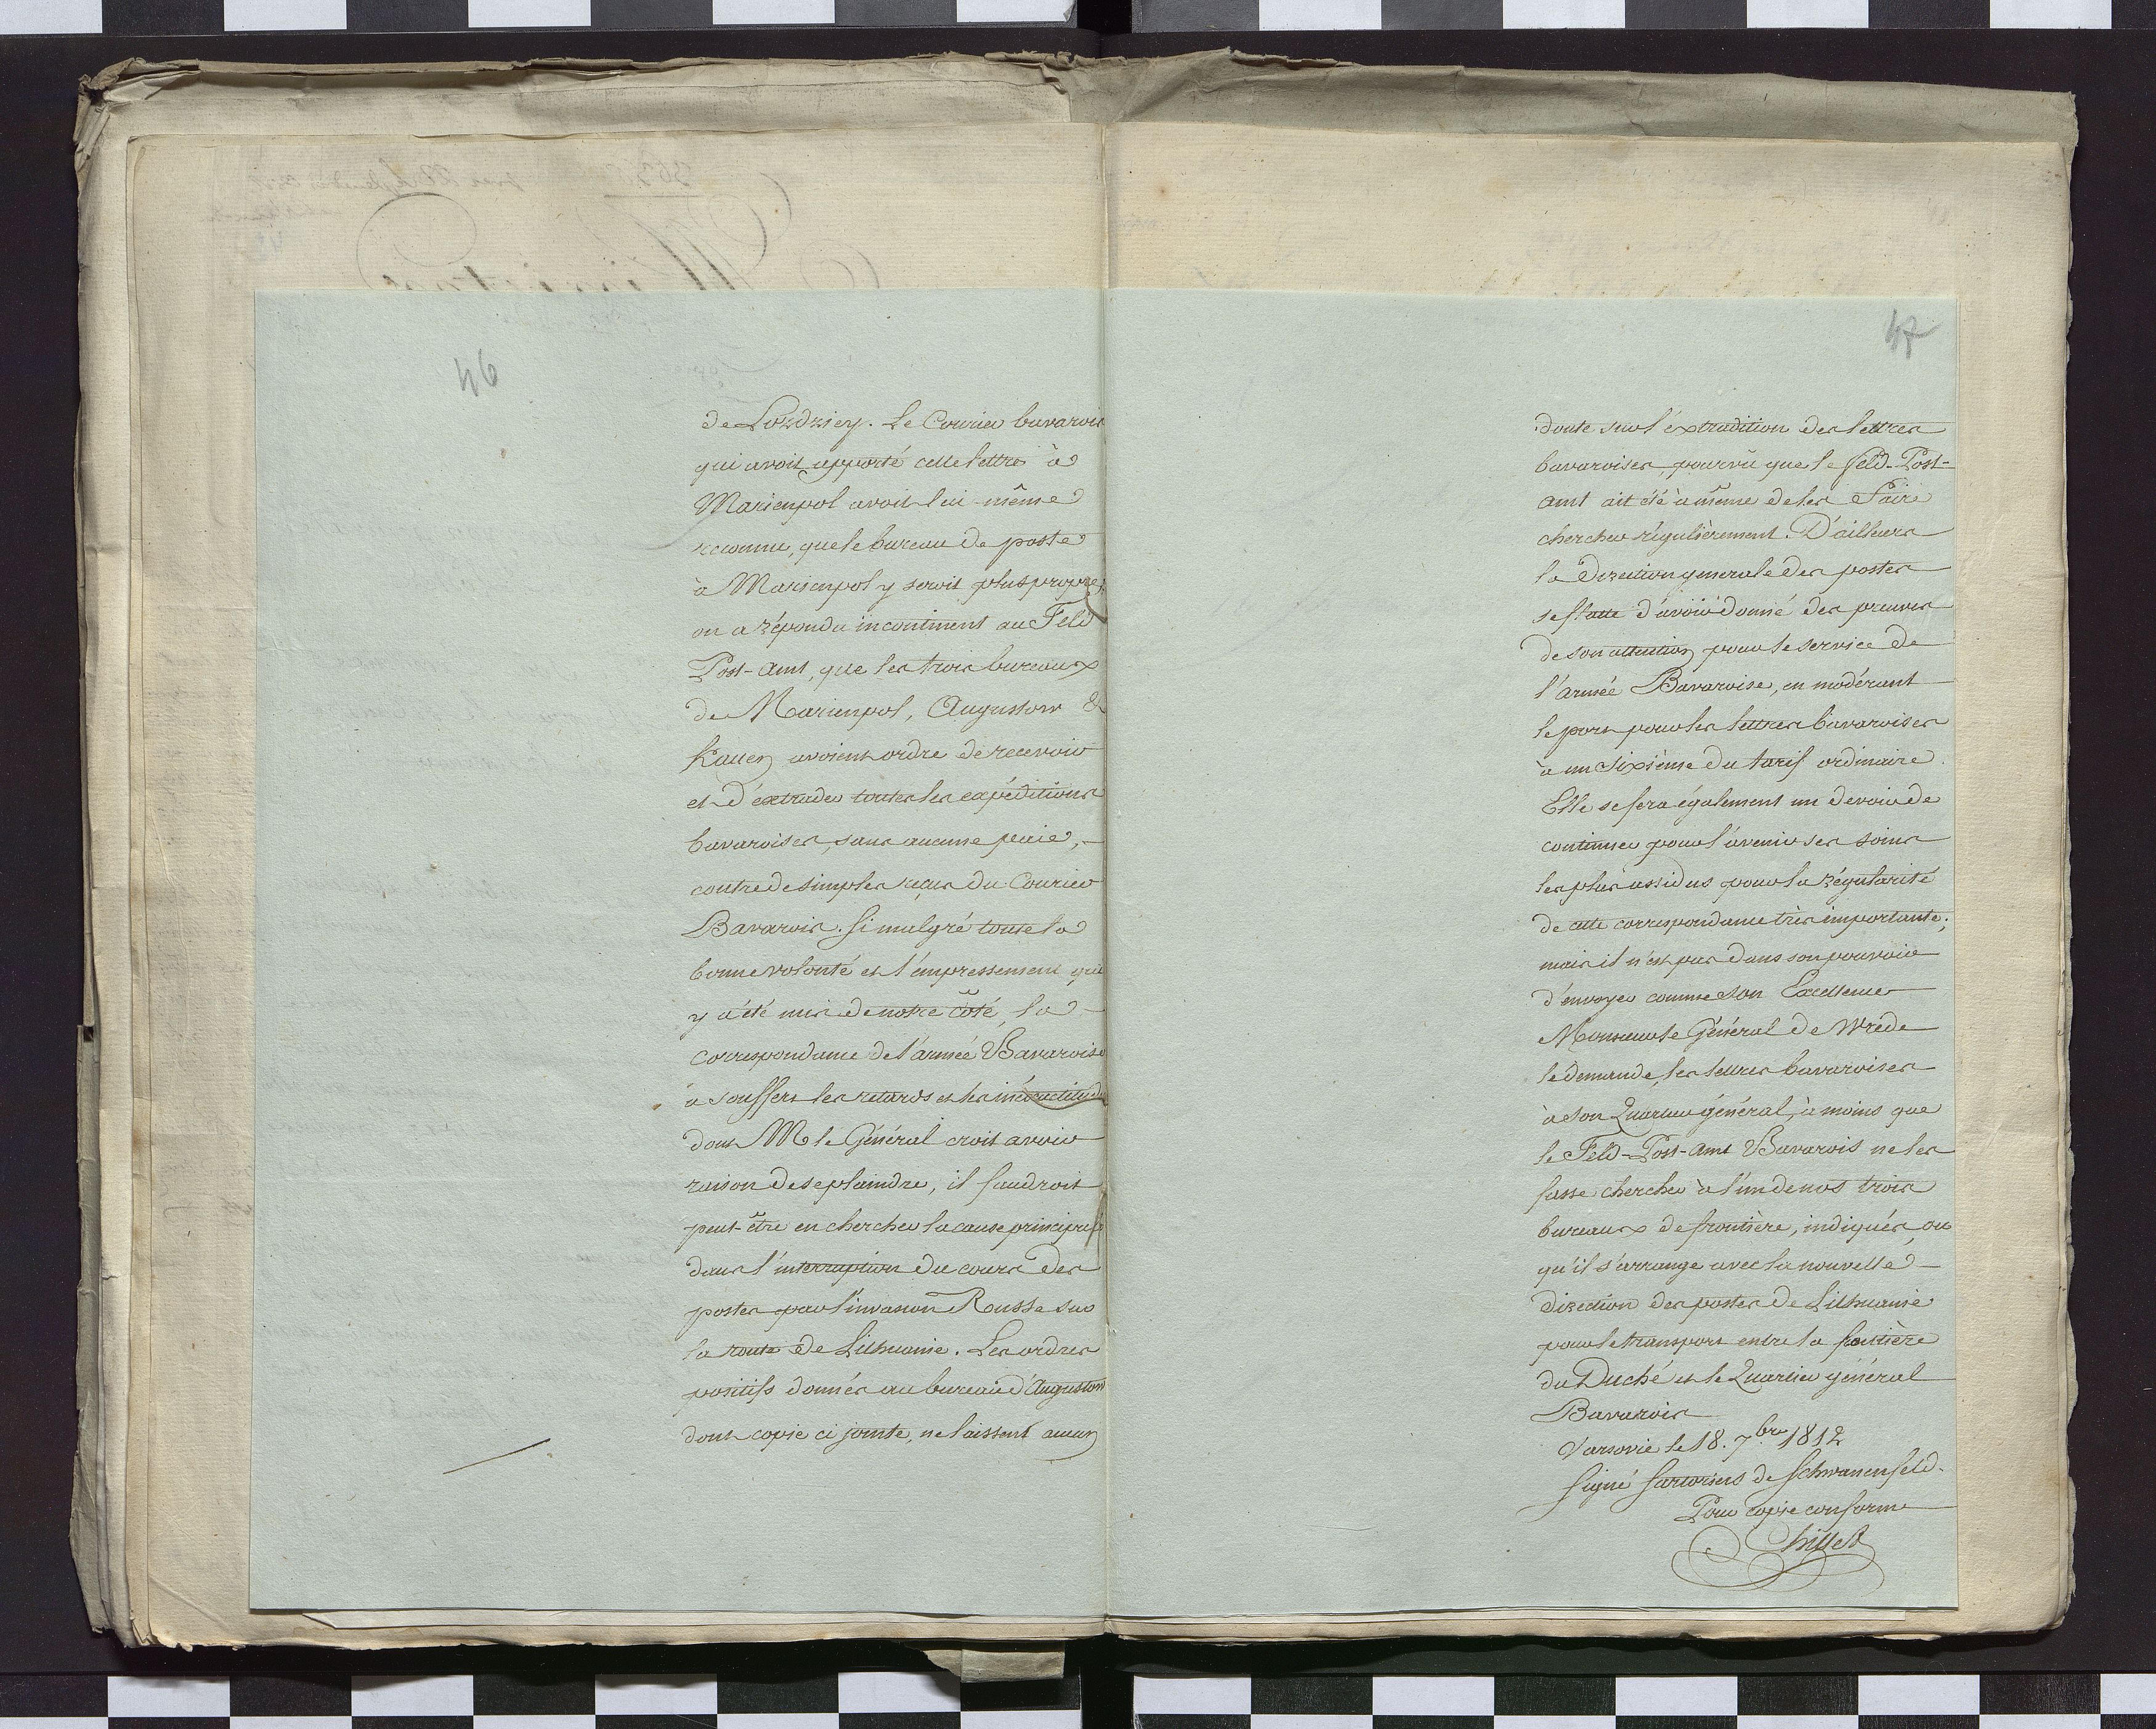 46
de Lozdziey. Le Courier bavarois
qui avoit apporté cette lettre à
Marienpol avoit lui-même
reconnu, que le bureau de poste
à Marienpol y seroit plus propre;
on a répondu incontinent au Feld
Post-amt, que les trois bureaux
de Marienpol, Augustow &
Kauen avoient ordre de recevoir
et d'extrader toutes les expéditions
bavaroises, sans aucune paie,
contre de simples reçus du Courier
Bavarois. Si malgré toute la
bonne volonté et l'empressement qui
y a été mis de notre côté, la
correspondance de l'armée Bavaroise
a souffert les retards et les inéxactitudes
dont M le Général croit avoir
raison de se plaindre, il faudroit
peut-être en chercher la cause principale
dans l'interruption du cours des
postes par l'invasion Russe sur
la route de Lithuanie. Les ordres
positifs donnés au bureau d'Augustow
dont copie ci jointe, ne laissent aucun
47
doute sur l'éxtradition des lettres
bavaroises pourvû que le Feld-Post-
amt ait été à même de les faire
chercher régulièrement. D'ailleurs
la Direction generale des postes
se flatte d'avoir donné des preuves
de son attention pour le service de
l'armée Bavaroise, en modérant
le port pour les lettres bavaroises
à un sixième du tarif ordinaire.
Elle se fera également un devoir de
continuer pour l'avenir ses soins
les plus assidus pour la régularité
de cette correspondance très importante;
mais il n'est pas dans son pouvoir
d'envoyer comme Son Excellence
Monsieur le Général de Wrede
le demande, les lettres bavaroises
à son Quartier général, à moins que
le Feld-Post-amt Bavarois ne les
fasse chercher à l'un de nos trois
bureaux de frontière, indiqués, ou
qu'il s'arrange avec la nouvelle
direction des postes de Lithuanie
pour le transport entre la frontière
du Duché et le Quartier général
Bavarois
Varsovie le 18. 7bre 1812
Signé Sartorius de Schwanenfeld.
Pour copie conforme